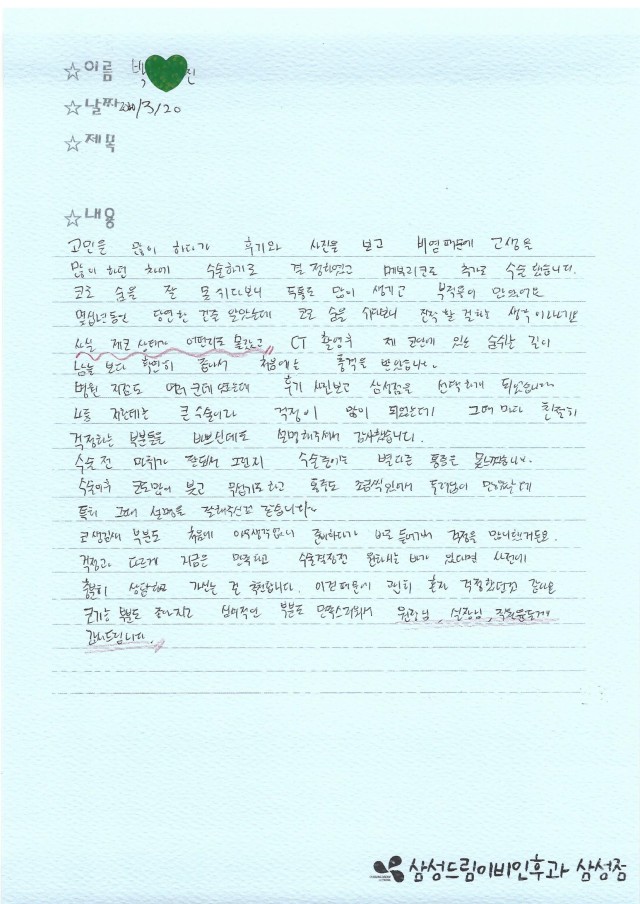 ☆이름 박 린
☆날짜 2020/3/20
☆제목
☆내용
고민을 많이 하다가 후기와 사진을 보고 비염때문에 고생을
많이 하던 차에 수술하기로 결정하였고 메부리코도 추가로 수술 했습니다.
코로 숨을 잘 못쉬다보니 두통도 많이 생기고 부작용이 많았어요
몇십년동안 당연한 건줄 알았는데 코로 숨을 쉬다보니 진작 할 걸하는 생각이
사실 제 코 상태가 어떤지도 몰랐고 CT 촬영후 제 코안에 있는 숨쉬는 길이
남들 보다 확연히 좁아서 처음에는 충격을 받았습니다.
병원 지점도 여러 군데 있는데 후기 사진보고 삼성점을 선택하게 되었습니다
큰수술이라 걱정이 많이 되었는데 그때 마다 친절히
걱정하는 부분들을 바쁘신데도 설명해주셔서 감사했습니다.
수술 전 마취가 잘되서 그런지 수술중에는 별다른 통증은 못느꼈습니다.
수술이후 코도많이 붓고 무섭기도하고 통증도 조금씩있어서
특히 그때 설명을 잘해주신것 같습니다~
코 생김새 부분도 처음에 아무생각없이 준비하다가 바로 들어가서 걱정을 많이했거든요.
걱정과 다르게 지금은 만족하고 수술결정전 원하시는 바가 있다면 사전에
충분히 상담하고 가시는 걸 추천합니다. 이것 때문에 괜히 혼자 걱정했던것 같아요
코기능 부분도 좋아지고 심미적인 부분도 만족스러워서 원장님, 실장님, 직원분들께
감사드립니다.
삼성드림이비인후과 삼성점